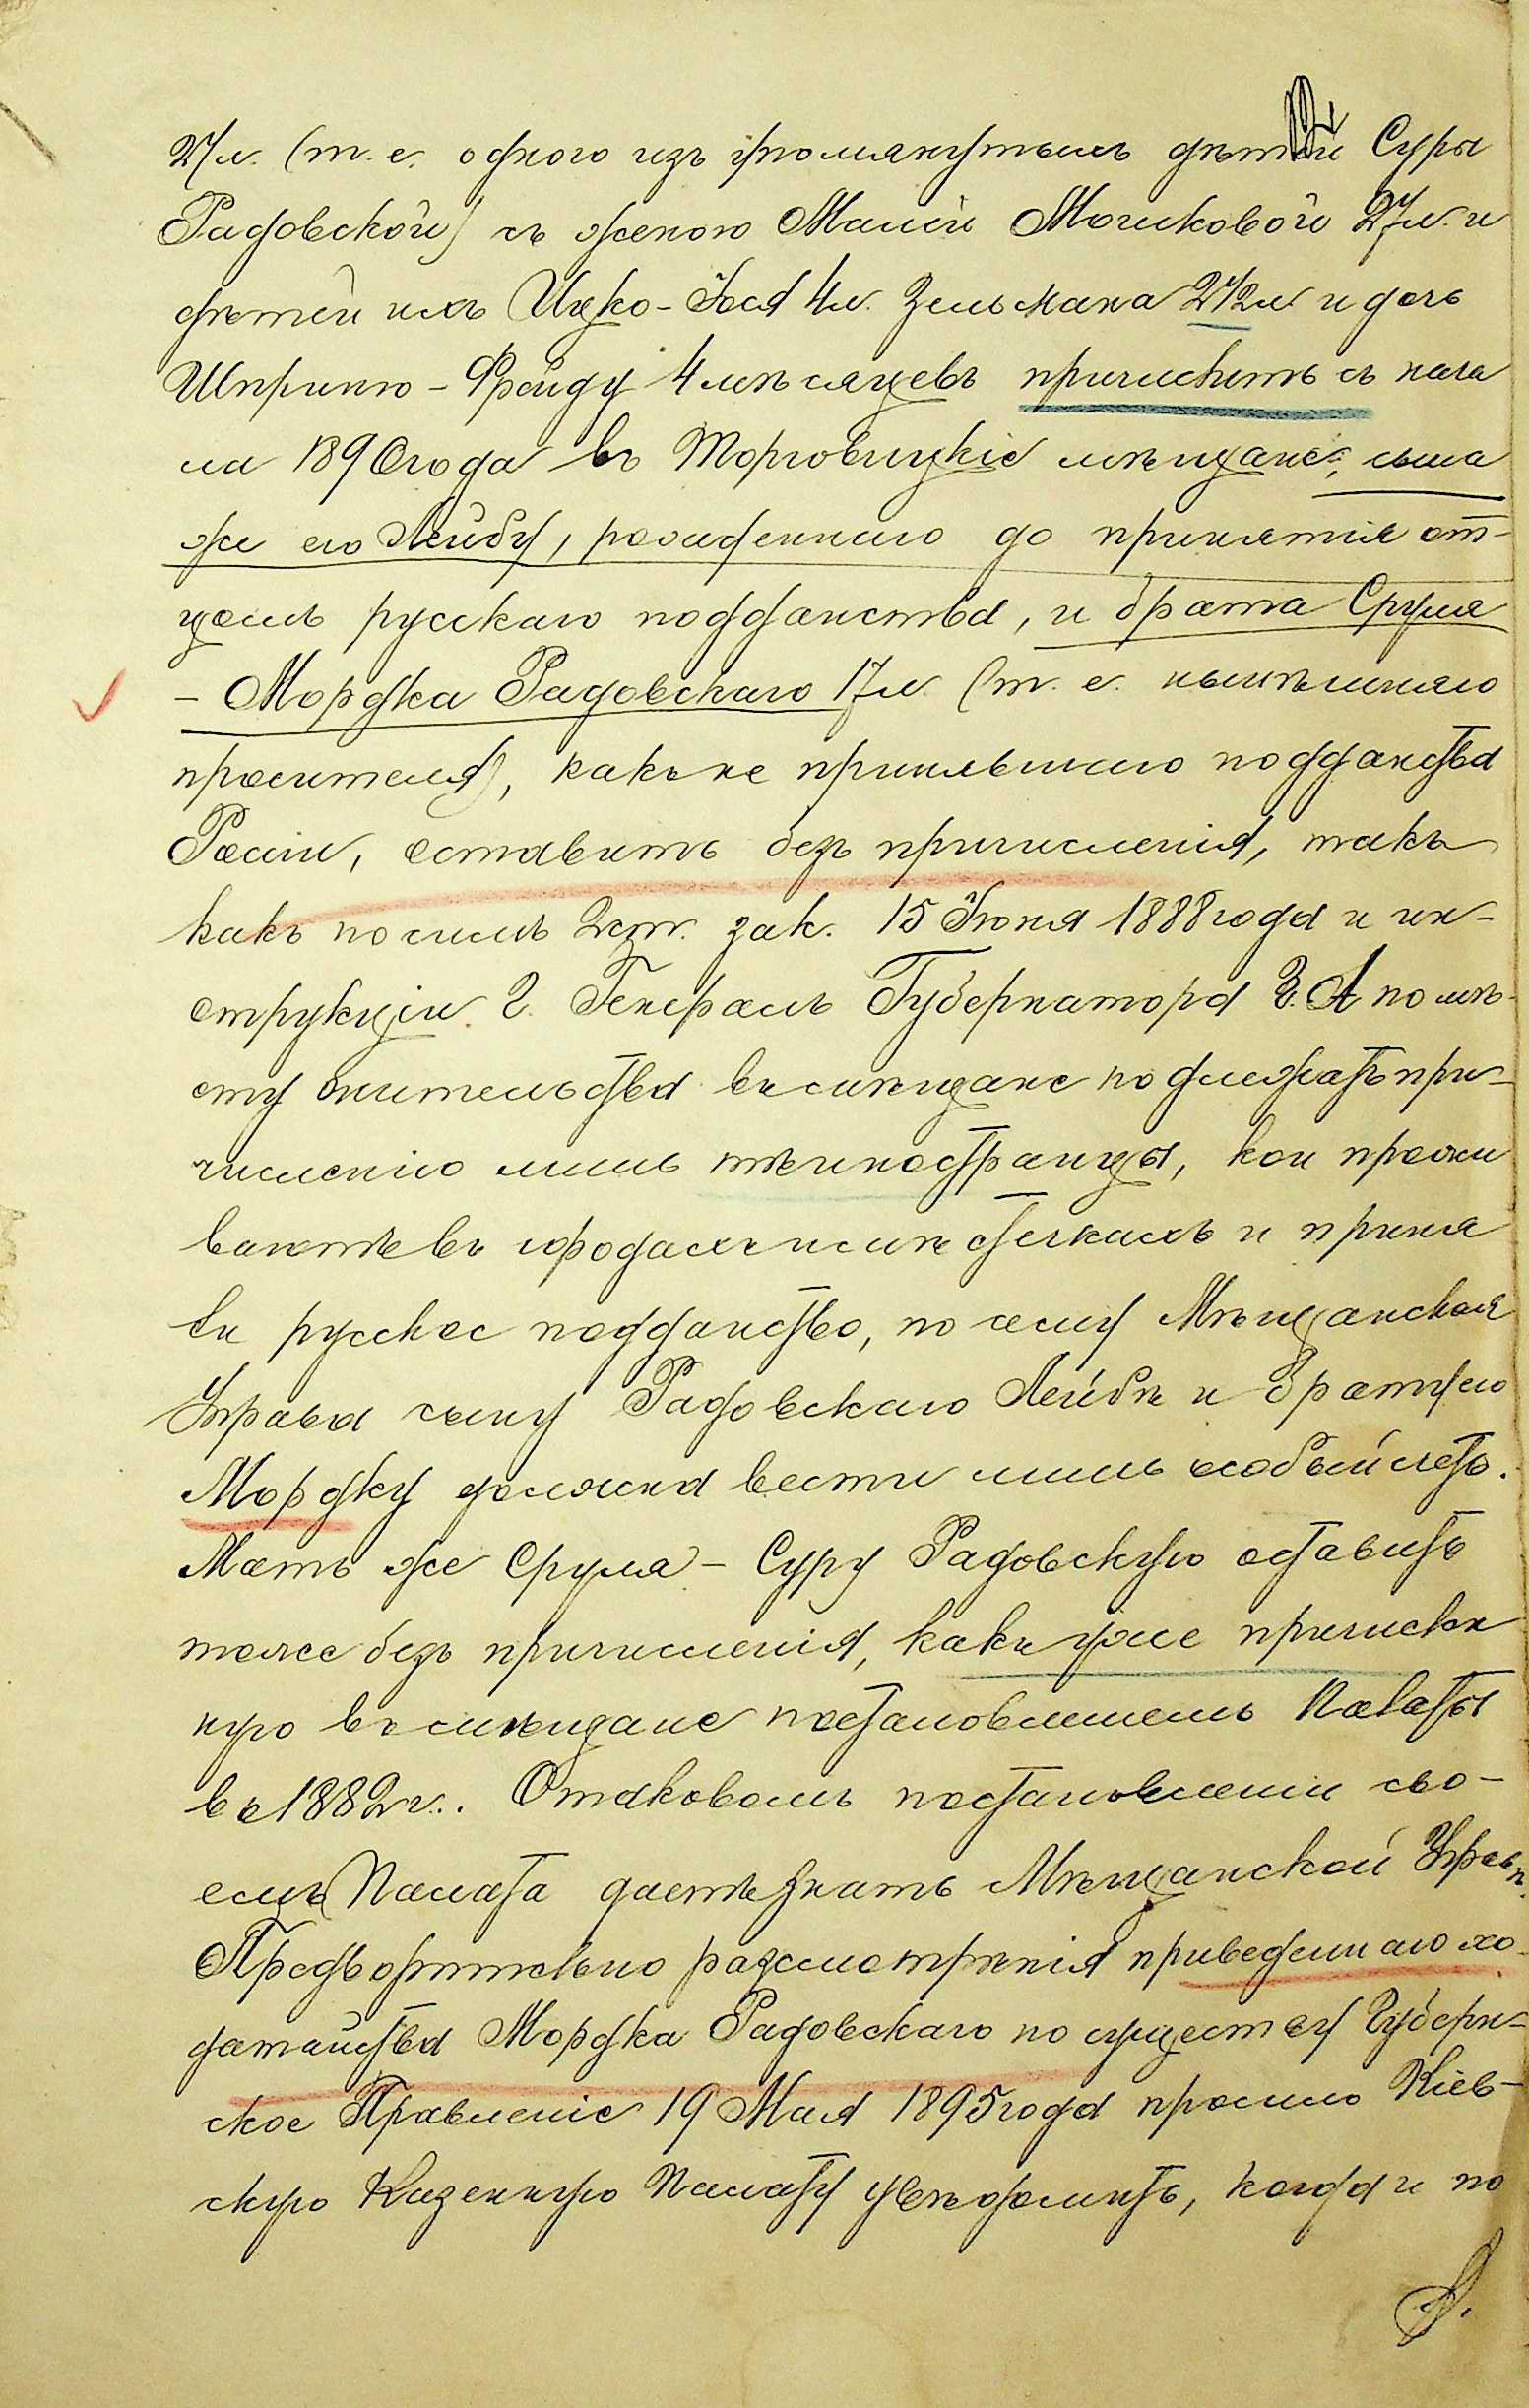 27 л. (т. е. одного изъ упомянутыхъ дѣтей Суры
Радовской) съ женою Маліей Мошковой 27 л. и
дѣтей ихъ Ицко-Іося 4 л. Зельмана 2 1/2 л и дочь
Шприню-Фрейду 4 мѣсяцевъ причислить съ нача
ла 1890 года въ Торговицкіе мѣщане, сына
же его Лейбу, рожденнаго до принятія от-
цомъ русскаго подданства, и брата Сруля
- Мордка Радовскаго 17 л. (т. е. нынѣшняго
просителя), какъ не принявшаго подданства
Россіи, оставить безъ причисленія, такъ
какъ по силѣ 2 ст. зак. 15 Іюня 1888 года и ин-
струкціи Г. Генералъ Губернатора З. А по мѣ-
сту жительства въ мѣщане подлежатъ при-
численію лишь тѣ иностранцы, кои прожи
ваютъ въ городахъ и мѣстечкахъ и приня
ли русское подданство, по сему Мѣщанская
Управа сыну Радовскаго Лейбѣ и брату его
Мордку должна вести лишь особый счетъ.
Мать же Сруля - Суру Радовскую оставить
тоже безъ причисленія, какъ уже причислен
ную въ мѣщане постановленіемъ Палаты
въ 1882 г.. О таковомъ постановленіи сво-
емъ Палата даетъ знать Мѣщанской Управѣ.
Предварительно разсмотрѣнія приведеннаго хо-
датайства Мордка Радовскаго по существу Губерн-
ское Правленіе 19 Мая 1895 года просило Кіев-
скую Казенную Палату увѣдомить, когда и по